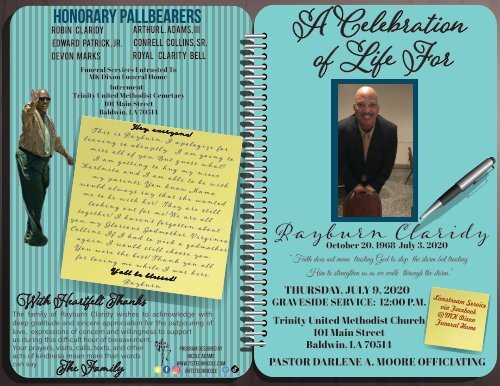 HONORARY PALLBEARERS
ROBIN CLARIDY
ARTHUR L. ADAMS, III
EDWARD PATRICK, JR.
CONRELL COLLINS, SR.
DEVON MARKS
ROYAL CLARITY BELL
Funeral Services Entrusted To
MK Dixon Funeral Home
Interment:
Trinity United Methodist Cemetary
101 Main Street
Baldwin, LA 70514
Hey, everyone!
This is Rayburn. I apologize for
leaving so abruptly. I am going to
miss all of you. But guess what?
I am getting to hug my niece
and I am able to be with
my parents. You know Mama
would always say that she wanted
me to be with her! They are still
looking out for me. We are all
together! I haven't forgotten about
you my Glorious Godmother, Virginia
Collins. If I had to pick a godmother
again, I would still choose you.
You were the best! Thank you all
for loving me while I was here.
Y'all be blessed!
Rayburn
With Heartfelt Thanks
The family of Rayburn Claridy wishes to acknowledge with
deep gratitude and sincere appreciation for the outpouring of
love, expressions of concern and willingness to support
us during this difficult hour of bereavement.
Your prayers, visits, calls, texts, and other
acts of kindness mean more than words
can say.
The Family
PROGRAM DESIGNED BY
NICOLE ADAMS
WWW.ITSTECHNICOLE.COM
@ITSTECHNICOLE
A Celebration
of Life For
Rayburn Claridy
October 20, 1968-July 3, 2020
"Faith does not mean trusting God to stop the storm but trusting
Him to strengthen us as we walk through the storm."
THURSDAY, JULY 9, 2020
GRAVESIDE SERVICE: 12:00 P.M.
Trinity United Methodist Church
101 Main Street
Baldwin, LA 70514
Livestream Service
via Facebook
@MK Dixon
Funeral Home
PASTOR DARLENE A. MOORE OFFICIATING